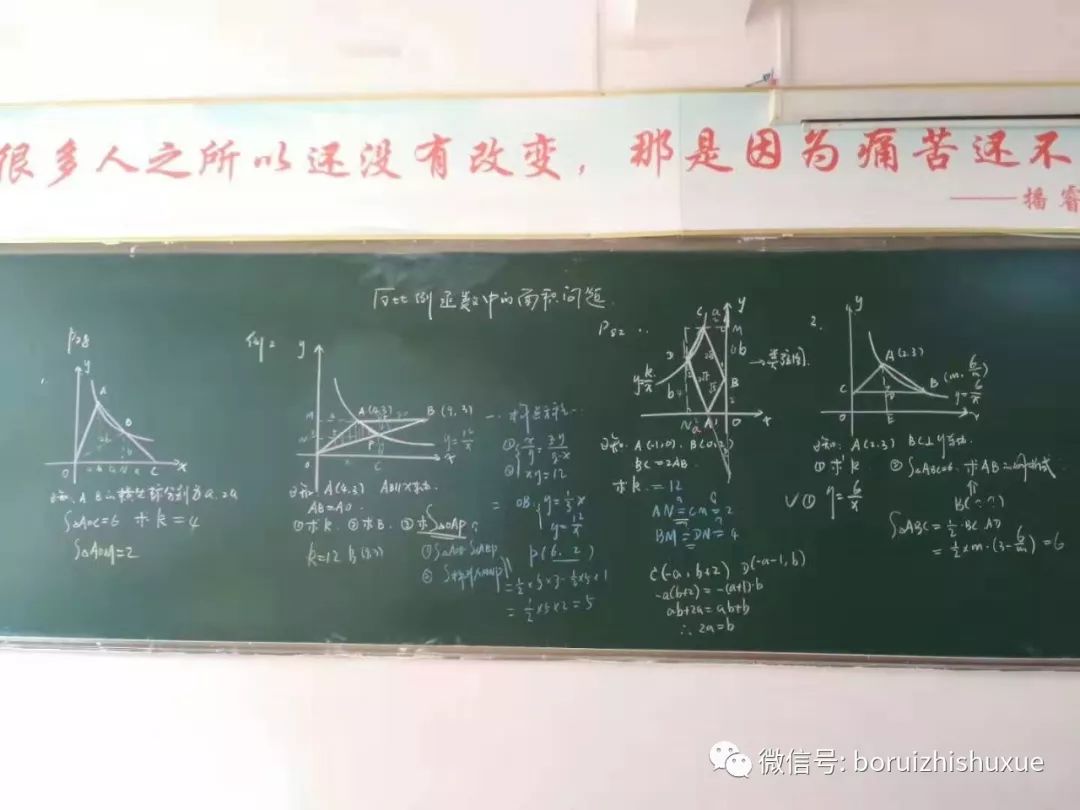 很多人之所以还没有改变，那是因为痛苦还不
——播睿
反比例函数中的面积问题
P28
y
A
B
O
C
x
已知、A B的横坐标分别为a、2a
S△AOC=6 求k=4
S△AOM=2
例2
y
M
A(4,3)
B(9,3)
N
P
y=12/x
O
C
x
已知、A(4,3) AB∥x轴
AB=AO
①求k ②求B ③求S△OAP
k=12 B(9,3)
①
②
xy=12
OB: y=1/3x
y=12/x
P(6, 2)
=1/2×5×3-1/2×5×1
=1/2×5×2=5
P82
y
C
a
M
D
y=k/x
b
B
N
a
A
O
x
已知: A(-1,0) B(0,2)
BC=2AB
求k=12
AN=CM=2
BM=DN=4
C(-a, b+2) D(-a-1, b)
-a(b+2)=-(a+1)·b
ab+2a=ab+b
∴ 2a=b
2.
y
A(2,3)
C
B(m, 6/m)
D
y=6/x
O
E
x
已知: A(2,3) BC⊥y轴
①求k ②S△ABC=6 求AB的解析式
√① y=6/x
BC(??)
S△ABC=1/2·BC·AD
=1/2×m·(3-6/m)=6
微信号: boruizhishuxue